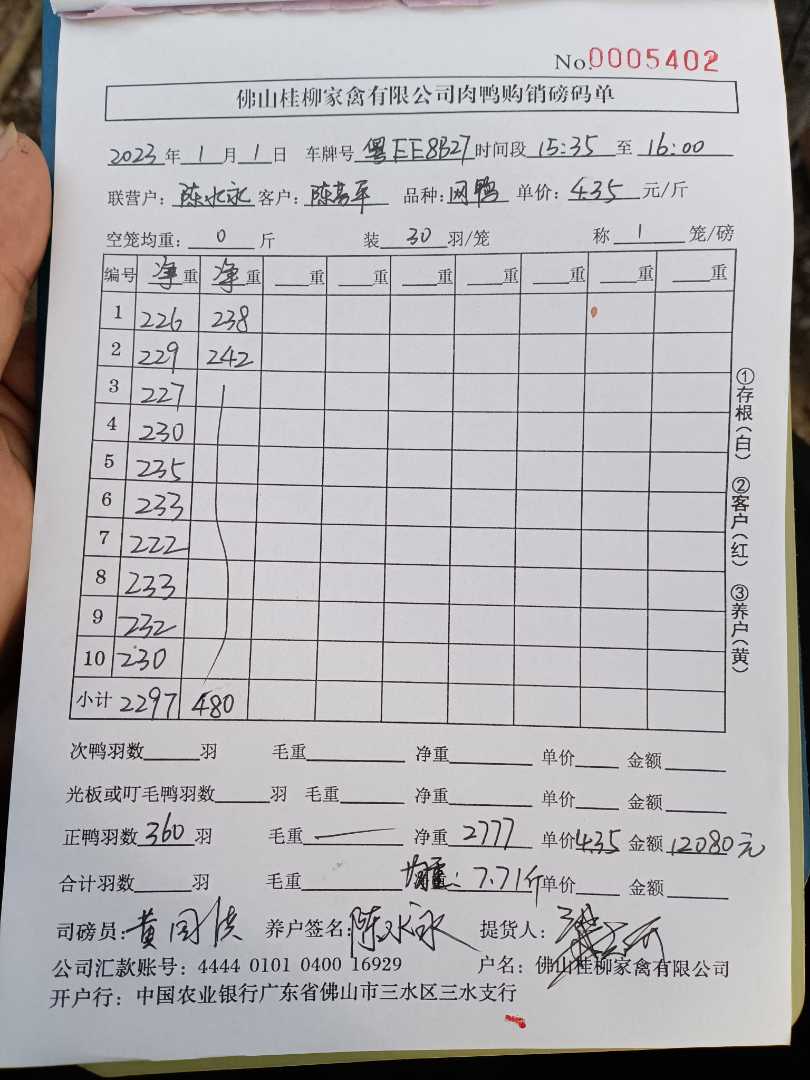 No.0005402
佛山桂柳家禽有限公司肉鸭购销磅码单
2023年1月1日 车牌号 粤EE8B27 时间段 15:35 至 16:00
联营户：陈水永 客户：陈高平 品种：网鸭 单价：4.35 元/斤
空笼均重：0 斤 装 30 羽/笼 称 1 笼/磅
编号 净重 净重 重 重 重 重 重 重 重
1 226 238
2 229 242
3 227
4 230
5 235
6 233
7 222
8 233
9 232
10 230
小计 2297 480
①存根(白) ②客户(红) ③养户(黄)
次鸭羽数 羽 毛重 净重 单价 金额
光板或叮毛鸭羽数 羽 毛重 净重 单价 金额
正鸭羽数 360 羽 毛重 净重 2777 单价 4.35 金额 12080元
合计羽数 羽 毛重 均重：7.71斤 单价 金额
司磅员：黄 养户签名：陈水永 提货人：
公司汇款账号：4444 0101 0400 16929 户名：佛山桂柳家禽有限公司
开户行：中国农业银行广东省佛山市三水区三水支行